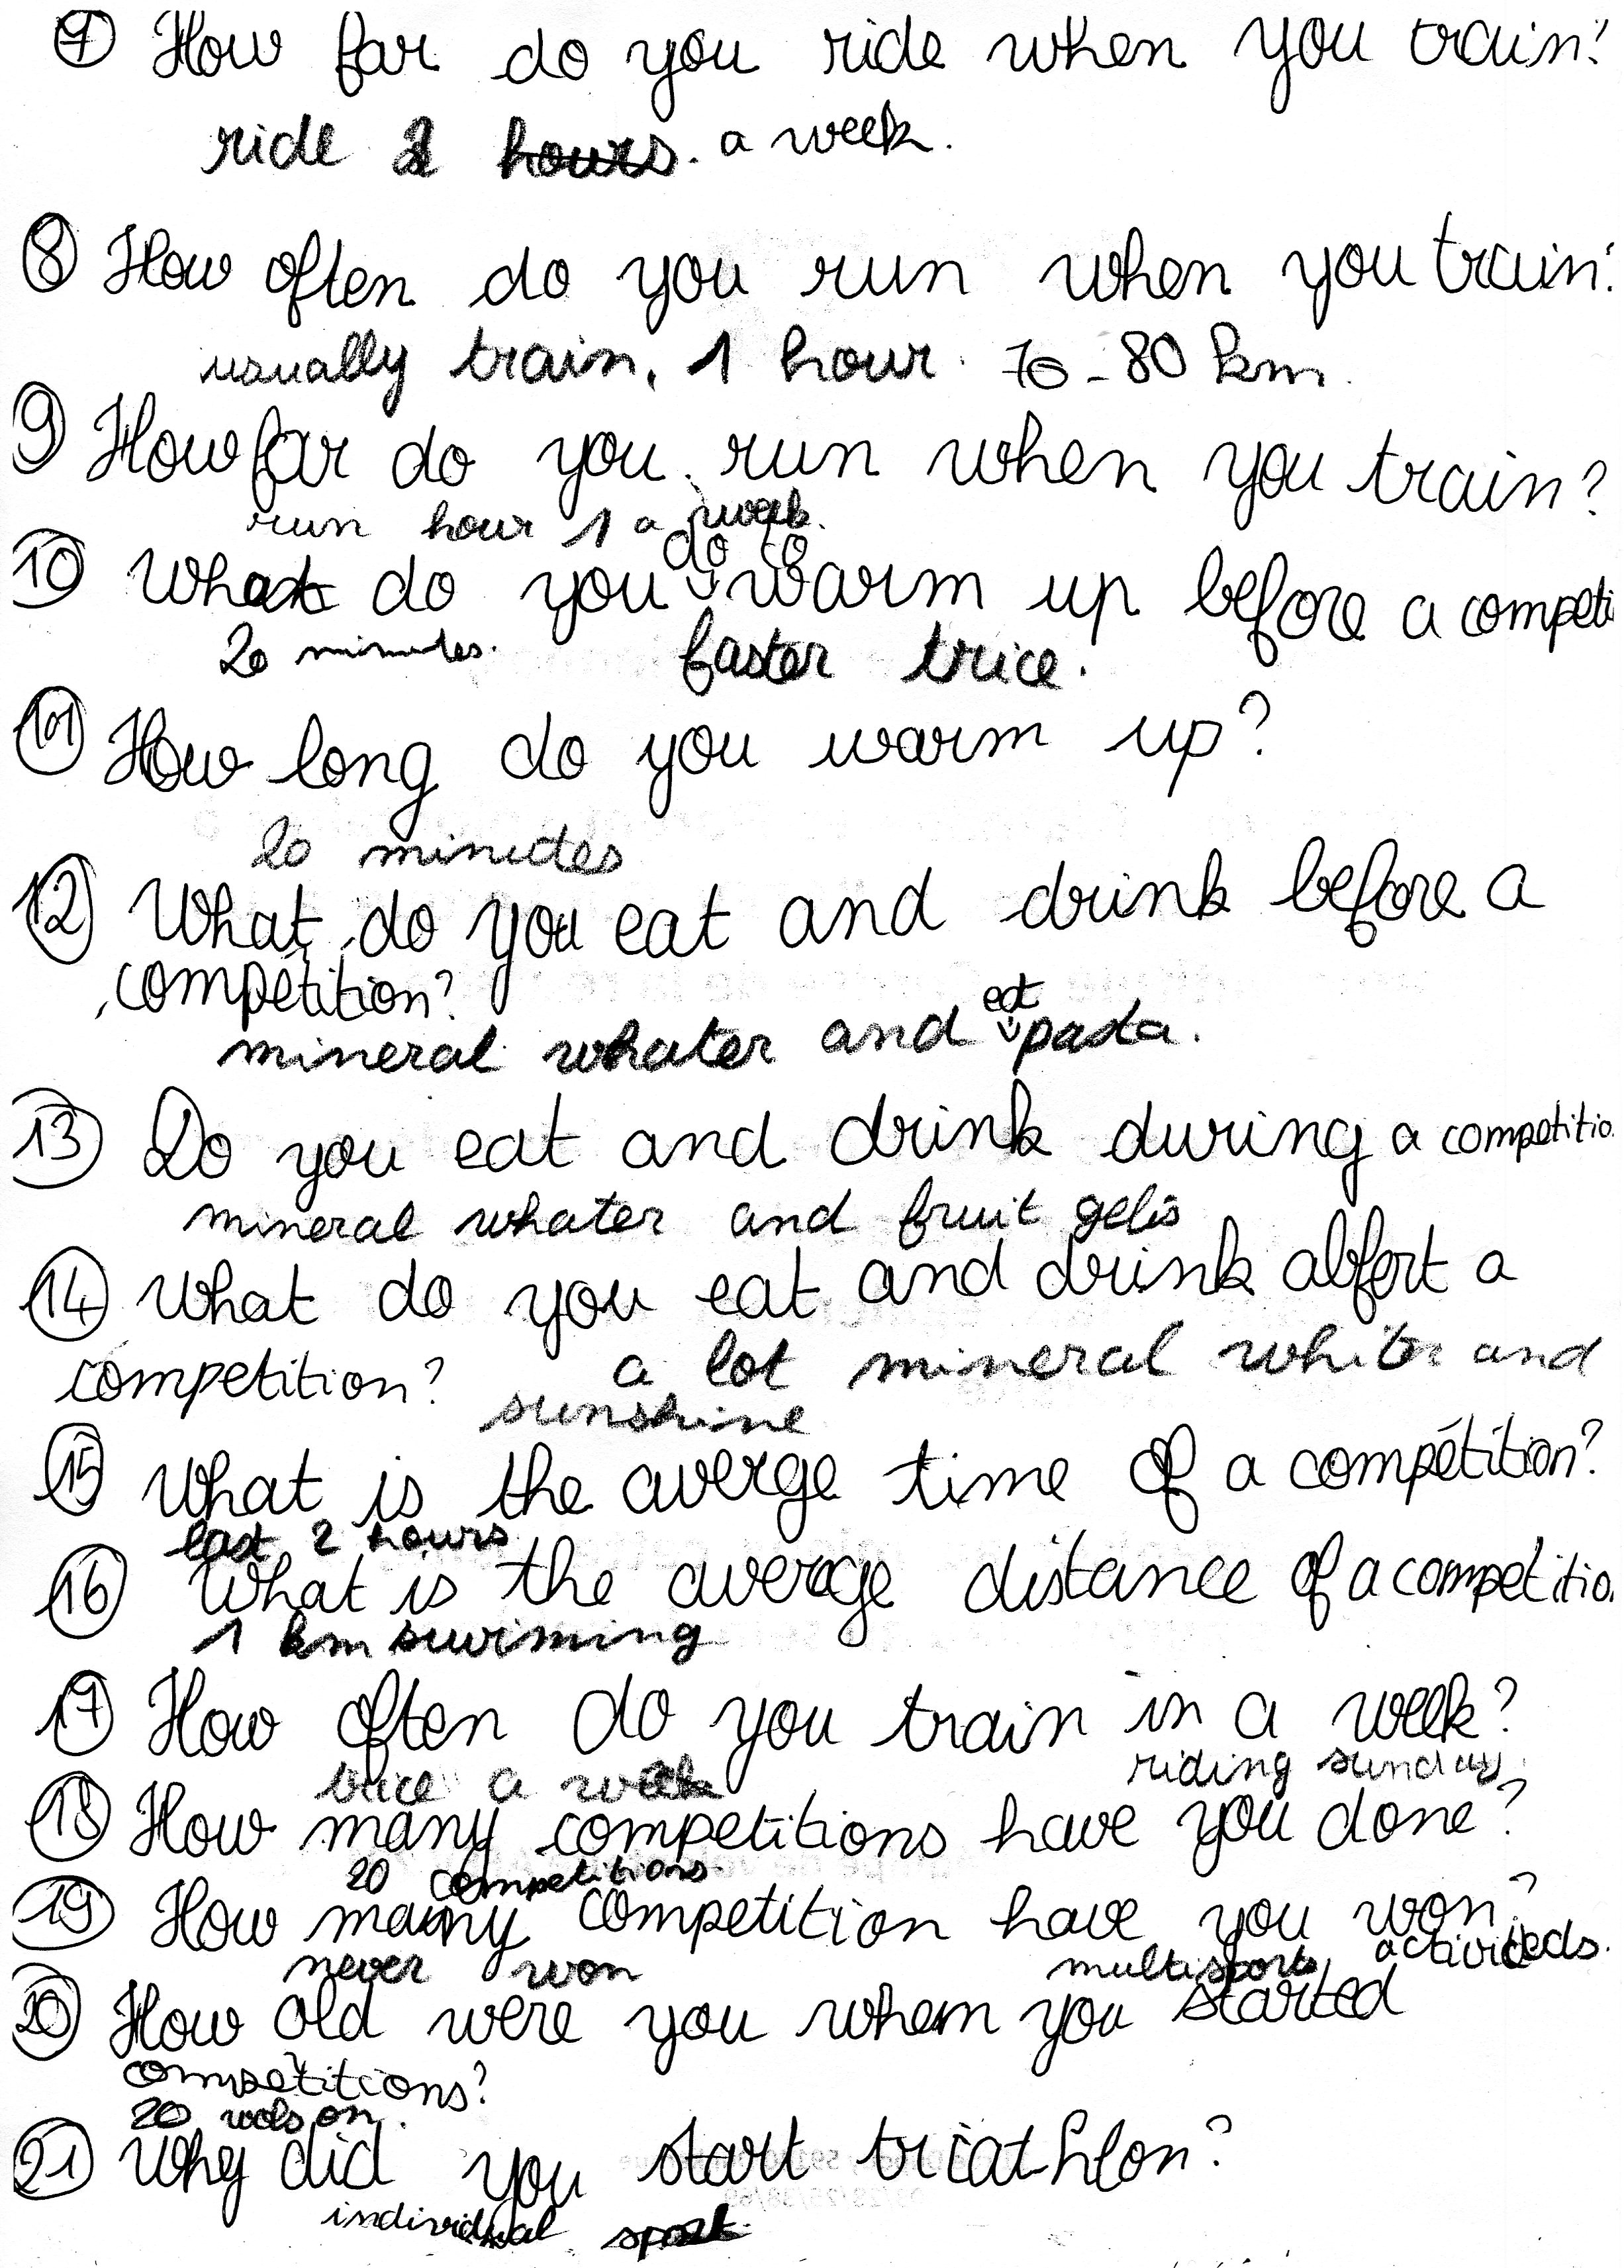 7 How far do you ride when you train?
ride 2 hours. a week.
8 How often do you run when you train?
usually train, 1 hour. 70-80 km.
9 How far do you run when you train?
run hour 1 a week.
10 What do you do to warm up before a competi
20 minutes. faster trice.
11 How long do you warm up?
20 minutes
12 What do you eat and drink before a
compétition?
mineral whater and eat pasta.
13 Do you eat and drink during a competitio
mineral whater and fruit gelis
14 What do you eat and drink abfort a
competition? a lot mineral whiter and
sunshine
15 What is the averge time of a compétition?
last 2 hours
16 What is the average distance of a competitio
1 km swiming
17 How often do you train in a week?
trice a week riding sunday
18 How many competitions have you done?
20 competitions.
19 How many competition have you won?
never won multisports activiteds.
20 How old were you when you started
compétitions?
20
21 Why did you start triathlon?
individual sport.